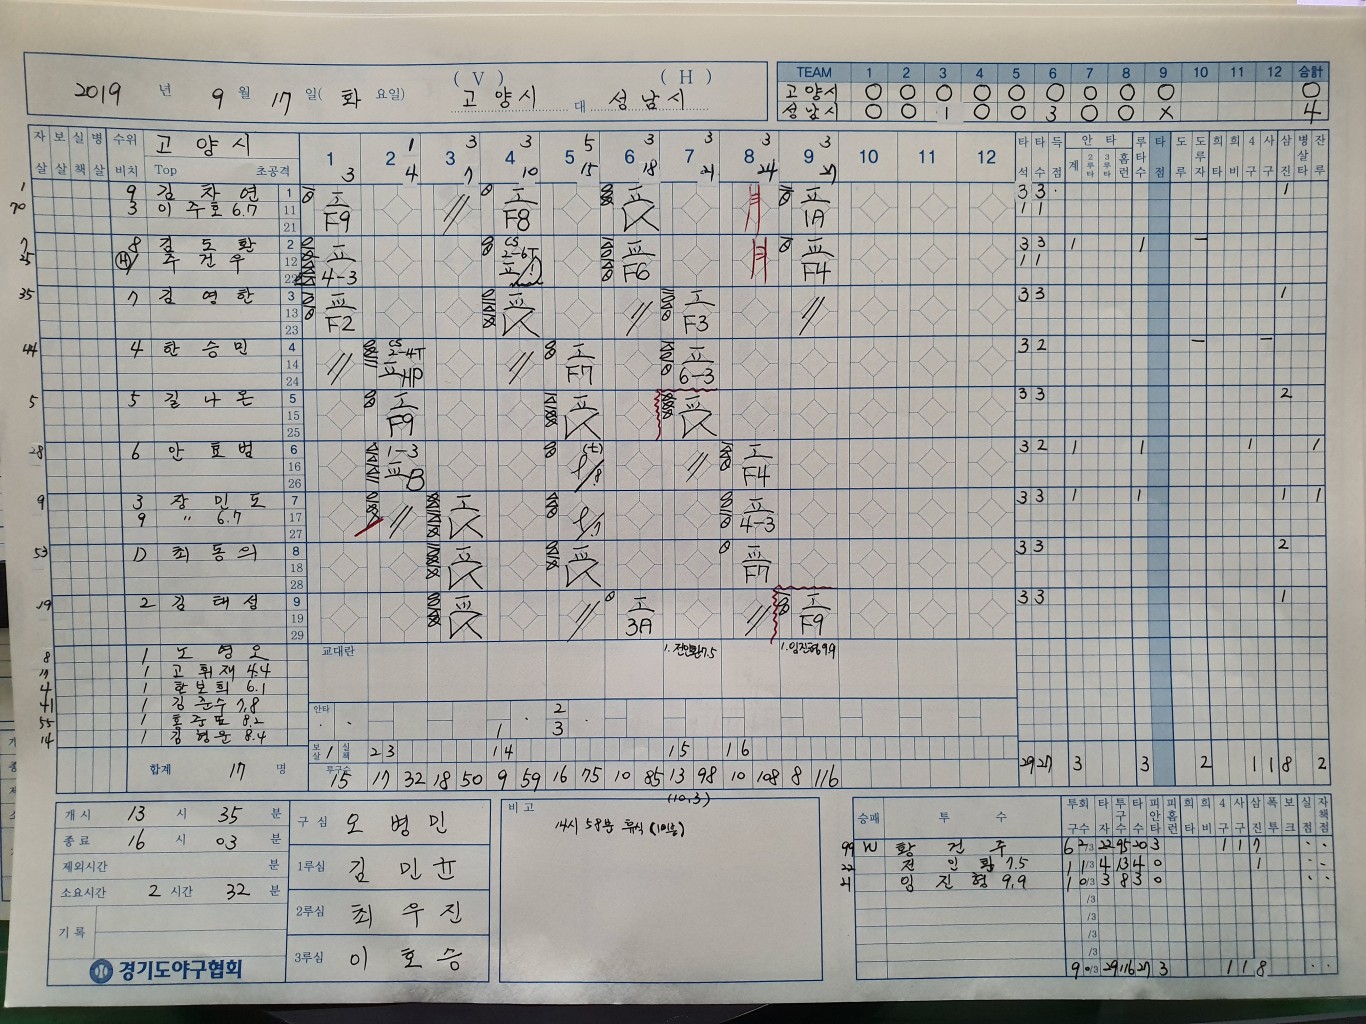 ( V ) ( H )
2019 년 9 월 17 일( 화 요일) 고양시 대 성남시
TEAM 1 2 3 4 5 6 7 8 9 10 11 12 合計
고양시 0 0 0 0 0 0 0 0 0 0
성남시 0 0 1 0 0 3 0 0 X 4
자살 보살 실책 병살 수위 비치 고양시 Top 초공격 1 2 3 4 5 6 7 8 9 10 11 12
1 3 5 3 3 3 3
3 4 7 10 15 18 21 24 27
타석 타수 득점 안타 계 2루타 3루타 홈런 루타수 타점 도루 도루자 희타 희비 4구 사구 삼진 병살타 잔루
1 9 김차연 1 F9 F8 K 1A 3 3 1
3 이주호 6.7 11 1 1
21
7 8 김도환 2 4-3 CS 2-6T F6 F4 3 3 1 1
H 주건우 12 1 1
22
35 7 김영한 3 F2 K F3 3 3 1
13
23
44 4 한승민 4 CS 2-4T HP F7 6-3 3 2
14
24
5 5 길나온 5 F9 K K 3 3 2
15
25
28 6 안효범 6 1-3 B F4 3 2 1 1 1 1
16
26
9 3 장민도 7 K 4-3 3 3 1 1 1 1
9 〃 6.7 17
27
53 D 최동의 8 K K F7 3 3 2
18
28
19 2 김태성 9 K 3A F9 3 3 1
19
29
8 1 노영오 교대란 1.전인환7.5 1.임진형9.9
1 고휘재 4.4
4 1 한보희 6.1
41 1 김준수 7.8 안타 2
55 1 8.2 1 3
14 1 8.4
보살 1 실책 2 3 1 4 1 5 1 6
합계 17 명 29 27 3 3 2 1 1 8 2
투구수 15 17 32 18 50 9 59 16 75 10 85 13 98 10 108 8 116
(10,3)
개시 13 시 35 분
종료 16 시 03 분
제외시간 분
소요시간 2 시간 32 분
기록
경기도야구협회
구심 오병민
1루심 김민규
2루심 최우진
3루심 이호승
비고
14시 58분 휴식
승패 투수 투구 회수 타자 투구수 타수 피안타 피홈런 희타 희비 4구 사구 삼진 폭투 보크 실점 자책점
99 W 황건주 6 2/3 22 95 20 3 1 1 7
22 전인환 7.5 1 1/3 4 13 4 0 1
21 임진형 9.9 1 0/3 3 8 3 0
/3
/3
/3
/3
9 0/3 29 116 27 3 1 1 8